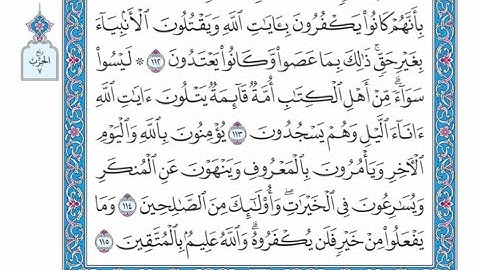 بِأَنَّهُمْ كَانُوا۟ يَكْفُرُونَ بِـَٔايَـٰتِ ٱللَّهِ وَيَقْتُلُونَ ٱلْأَنۢبِيَآءَ
بِغَيْرِ حَقٍّۚ ذَٰلِكَ بِمَا عَصَوا۟ وَّكَانُوا۟ يَعْتَدُونَ ١١٢ ۞ لَيْسُوا۟
سَوَآءًۗ مِّنْ أَهْلِ ٱلْكِتَـٰبِ أُمَّةٌ قَآئِمَةٌ يَتْلُونَ ءَايَـٰتِ ٱللَّهِ
ءَانَآءَ ٱلَّيْلِ وَهُمْ يَسْجُدُونَ ١١٣ يُؤْمِنُونَ بِٱللَّهِ وَٱلْيَوْمِ
ٱلْـَٔاخِرِ وَيَأْمُرُونَ بِٱلْمَعْرُوفِ وَيَنْهَوْنَ عَنِ ٱلْمُنكَرِ
وَيُسَـٰرِعُونَ فِى ٱلْخَيْرَٰتِۖ وَأُو۟لَـٰٓئِكَ مِنَ ٱلصَّـٰلِحِينَ ١١٤ وَمَا
يَفْعَلُوا۟ مِنْ خَيْرٍ فَلَن يُكْفَرُوهُۗ وَٱللَّهُ عَلِيمٌۢ بِٱلْمُتَّقِينَ ١١٥
ربع
الحزب
٧